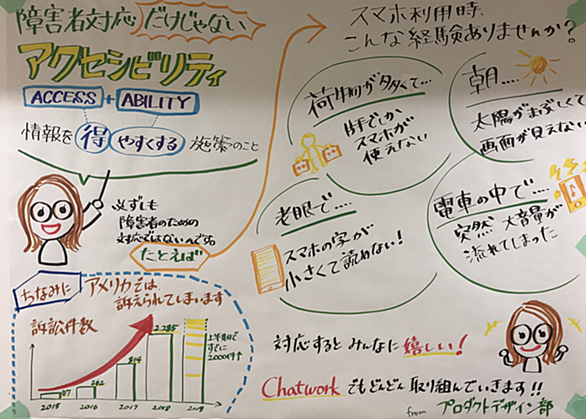 障害者対応だけじゃない
アクセシビリティ
ACCESS+ABILITY
情報を得やすくする施策のこと
必ずしも
障害者のための
対応ではないんです。
たとえば
スマホ利用時、
こんな経験ありませんか?
荷物が多くて…
片手でしか
スマホが
使えない
朝….
太陽がまぶしくて
画面が見えない
老眼で….
スマホの字が
小さくて読めない!
電車の中で….
突然 大音量が
流れてしまった
ちなみに
アメリカでは
訴えられてしまいます
訴訟件数
57
262
814
2,285
上半期で
すでに
2000件↑
2015 2016 2017 2018 2019
対応するとみんなに嬉しい!
Chatworkでもどんどん取り組んでいきます!!
from プロダクトデザイン部